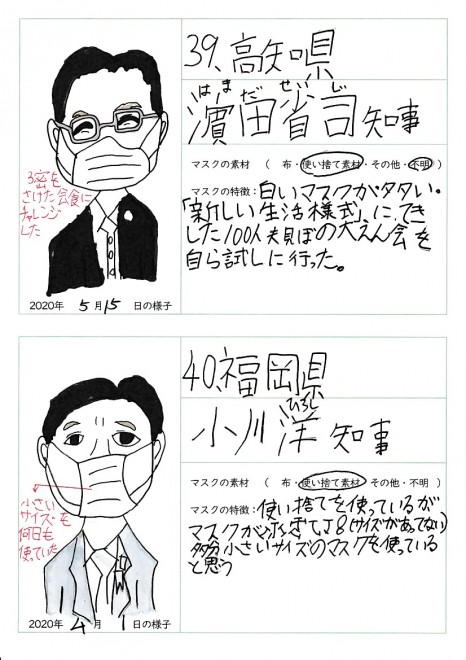 39、高知県
はまだ せいじ
濵田省司知事
マスクの素材 ( 布・使い捨て素材・その他・不明 )
マスクの特徴:白いマスクが多い。
「新しい生活様式」にてき
した100人規ぼの大えん会を
自ら試しに行った。
3密を
さけた会食に
チャレンジ
した
2020年 5月15日の様子
40、福岡県
ひろし
小川 洋 知事
マスクの素材 ( 布・使い捨て素材・その他・不明 )
マスクの特徴:使い捨てを使っているが
マスクが
(サイズがあってない)
多分小さいサイズのマスクを使っている
と思う
小さい
サイズを
何日も
使っていた
2020年 4月 1日の様子